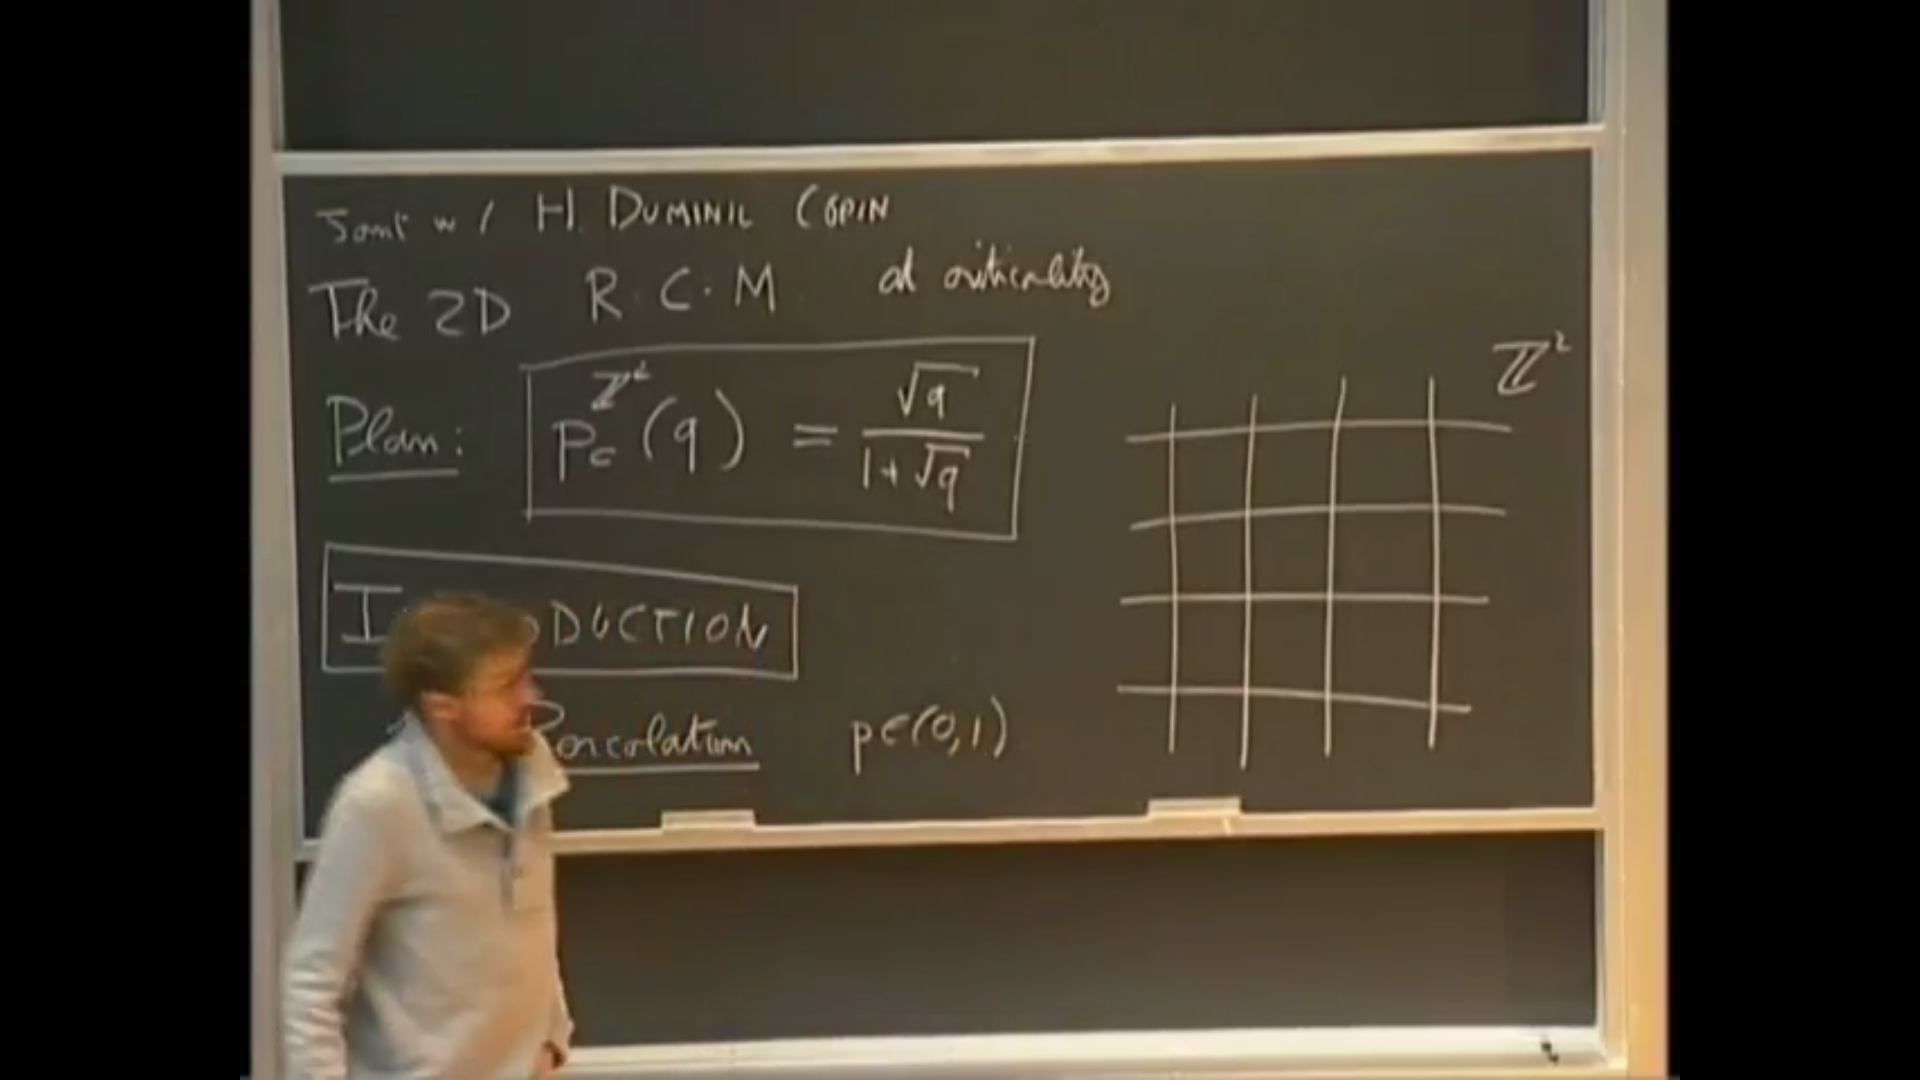 Joint w/ H. DUMINIL COPIN
The 2D R.C.M at criticality
Plan: p_c^{ℤ²}(q) = √q / (1+√q)
ℤ²
I DUCTION
Percolation p∈(0,1)